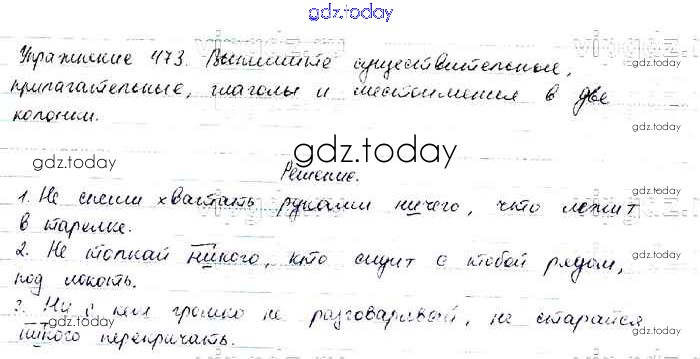 gdz.today
Упражнение 473. Выпишите существительные,
прилагательные, глаголы и местоимения в две
gdz.today
колонки.
gdz.today
gdz.today
Решение.
1. Не спеши хватать руками ничего, что лежит
в тарелке.
gdz.today
2. Не толкай никого, кто сидит с тобой рядом,
под локоть.
gdz.today
3. Ни с кем громко не разговаривай, не старайся
gdz.today
никого перекричать.
gdz.today